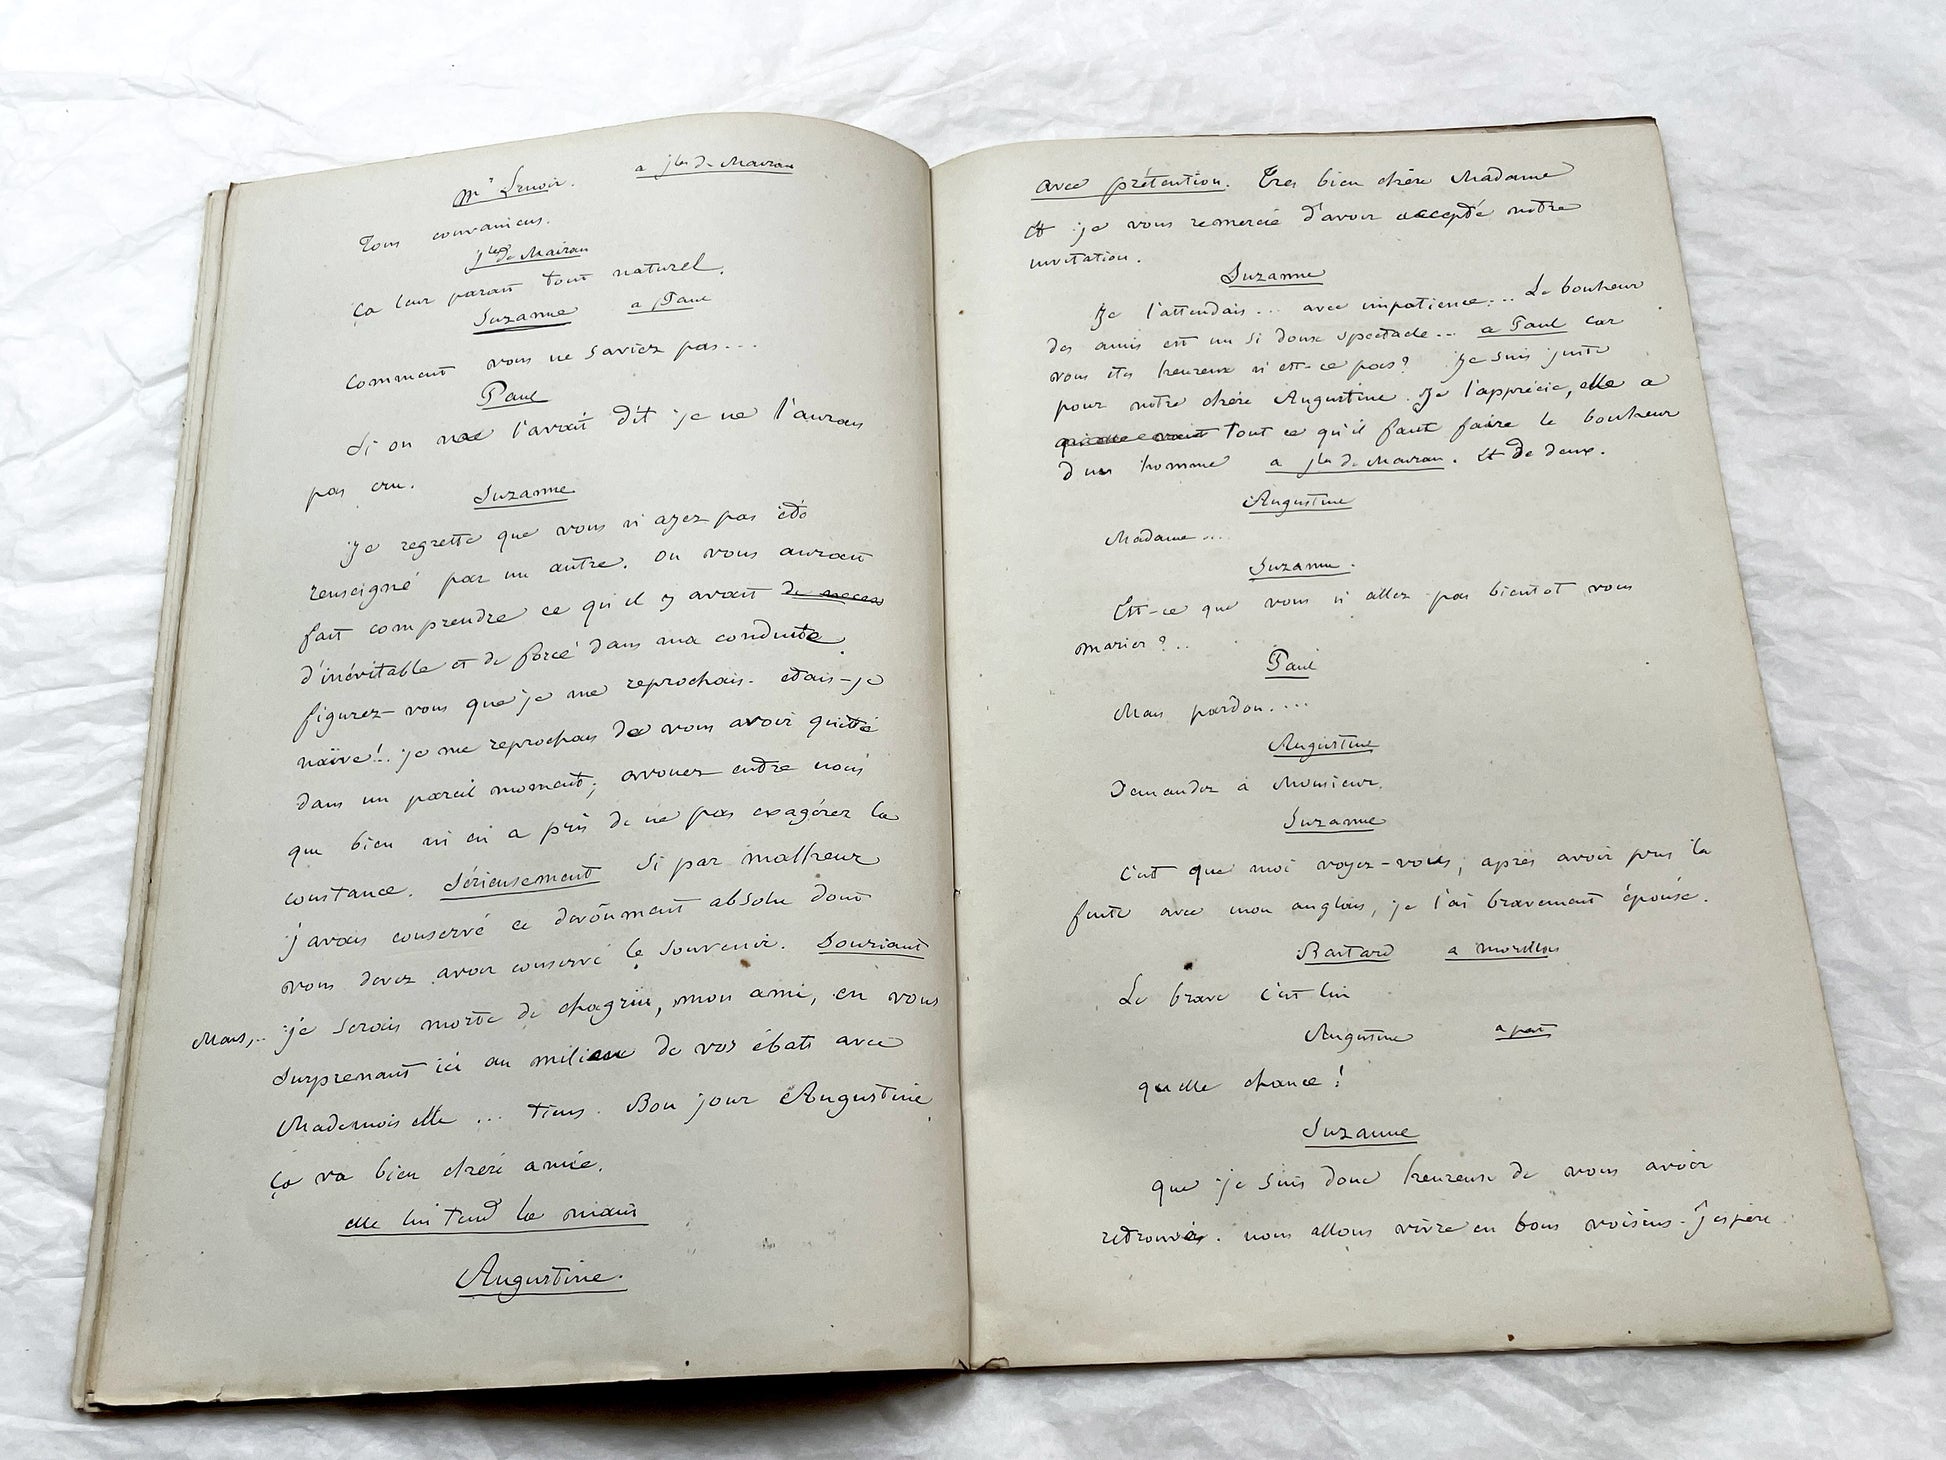 Mr Lenoir. a Jles de Mairan
Tous convaincus.
Jles de Mairan
Ça leur parait tout naturel.
Suzanne a Paul
Comment vous ne saviez pas...
Paul
Si on me l'avait dit je ne l'aurais
pas cru.
Suzanne
Je regrette que vous n'ayez pas été
renseigné par un autre. On vous aurait
fait comprendre ce qu'il y avait de neces
d'inévitable et de forcé dans ma conduite.
figurez-vous que je me reprochais. étais-je
naïve!.. je me reprochais de vous avoir quitté
dans un pareil moment; avouez entre nous
que bien m'en a pris de ne pas exagérer la
constance. Sérieusement Si par malheur
j'avais conservé ce dévoûment absolu dont
vous devez avoir conservé le souvenir. Souriant
Mais,.. je serais morte de chagrin, mon ami, en vous
surprenant ici au milieu de vos ébats avec
Mademoiselle ... tiens. Bonjour Augustine
Ça va bien chère amie.
elle lui tend la main
Augustine.
avec prétention. Très bien chère Madame
Et je vous remercie d'avoir accepté notre
invitation.
Suzanne
Je l'attendais... avec impatience... Le bonheur
des amis est un si doux spectacle... a Paul car
vous êtes heureux n'est-ce pas? Je suis juste
pour notre chère Augustine. Je l'apprécie, elle a
tout ce qu'il faut faire le bonheur
d'un homme a Jles de Mairan. Et de deux.
Augustine
Madame...
Suzanne.
Est-ce que vous n'allez pas bientot vous
marier?..
Paul
Mais pardon....
Augustine
Demandez à Monsieur.
Suzanne
C'est que moi voyez-vous, après avoir pris la
fuite avec mon anglais, je l'ai bravement épousé.
Bastard a morillas
Le brave c'est lui
Augustine a part
quelle chance!
Suzanne
que je suis donc heureuse de vous avoir
retrouvés. nous allons vivre en bons voisins. J'espère